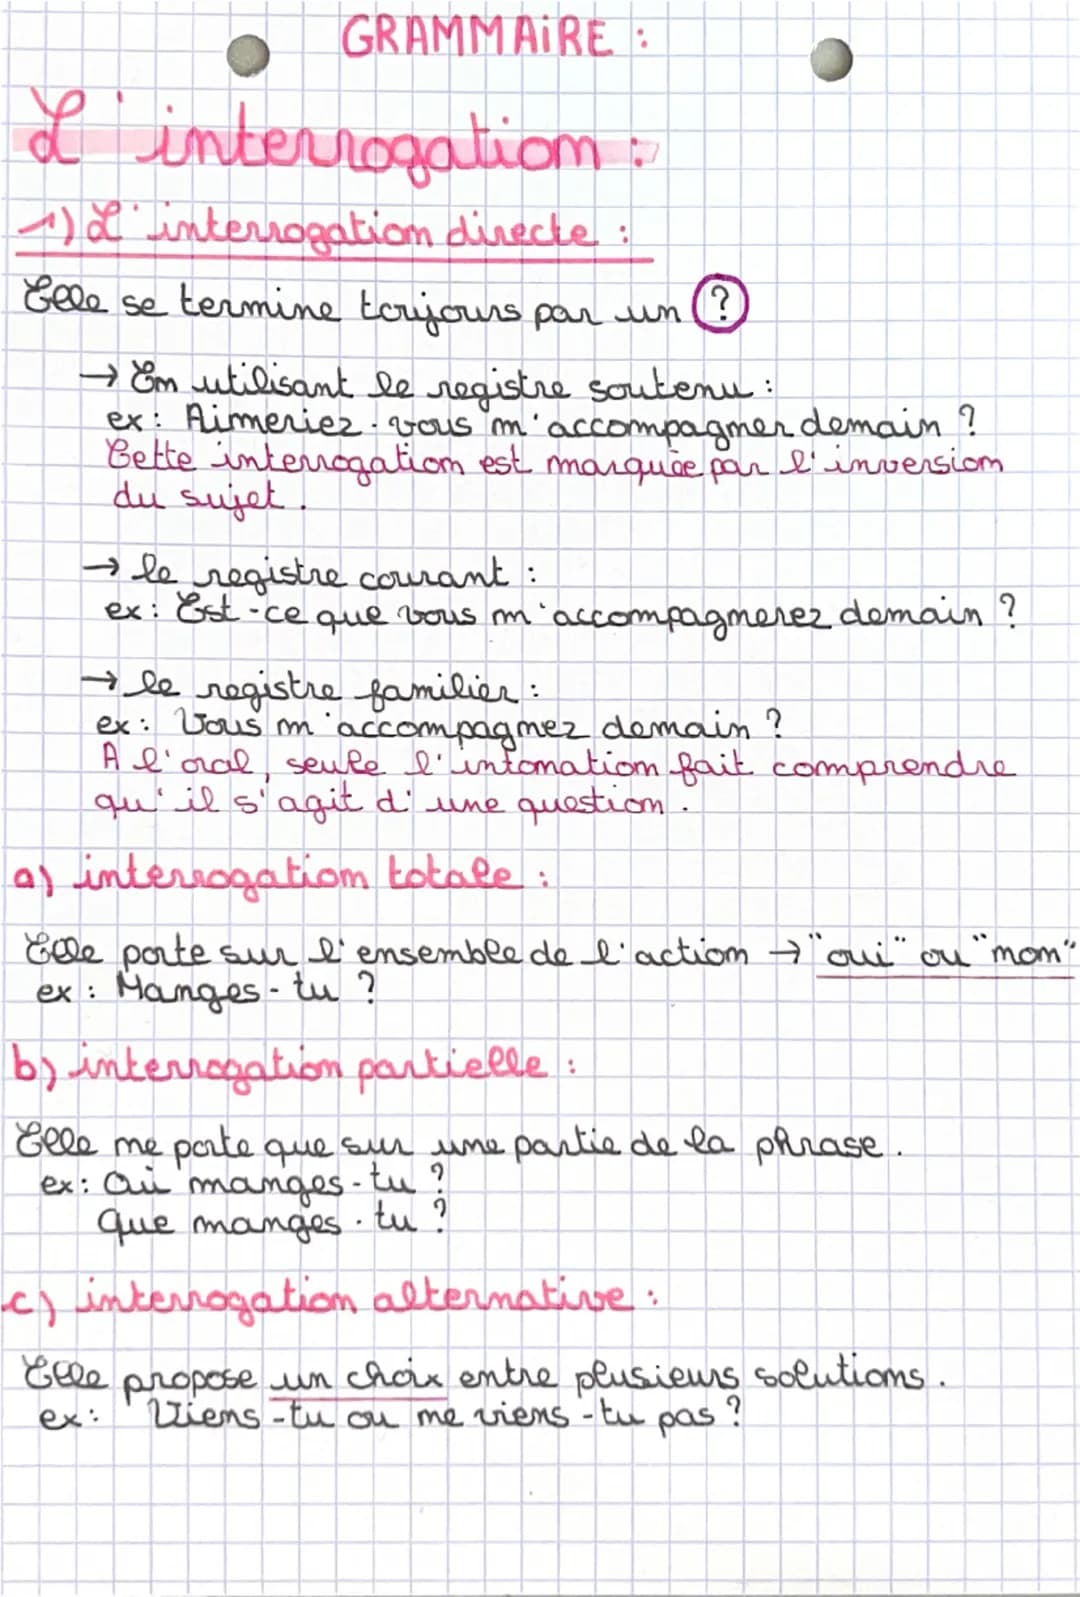 GRAMMAIRE :
L'interrogation :
1) L'interrogation directe :
Elle se termine toujours par un ?
→ En utilisant le registre soutenu :
ex : Aimeriez-vous m'accompagner demain ?
Cette interrogation est marquée par l'inversion
du sujet.
→ le registre courant :
ex : Est-ce que vous m'accompagnerez demain ?
→ le registre familier :
ex : Vous m'accompagnez demain ?
A l'oral, seule l'intonation fait comprendre
qu'il s'agit d'une question.
a) interrogation totale :
Elle porte sur l'ensemble de l'action → "oui" ou "non"
ex : Manges-tu ?
b) interrogation partielle :
Elle ne porte que sur une partie de la phrase.
ex : Où manges-tu ?
Que manges-tu ?
c) interrogation alternative :
Elle propose un choix entre plusieurs solutions.
ex : Viens-tu ou ne viens-tu pas ?